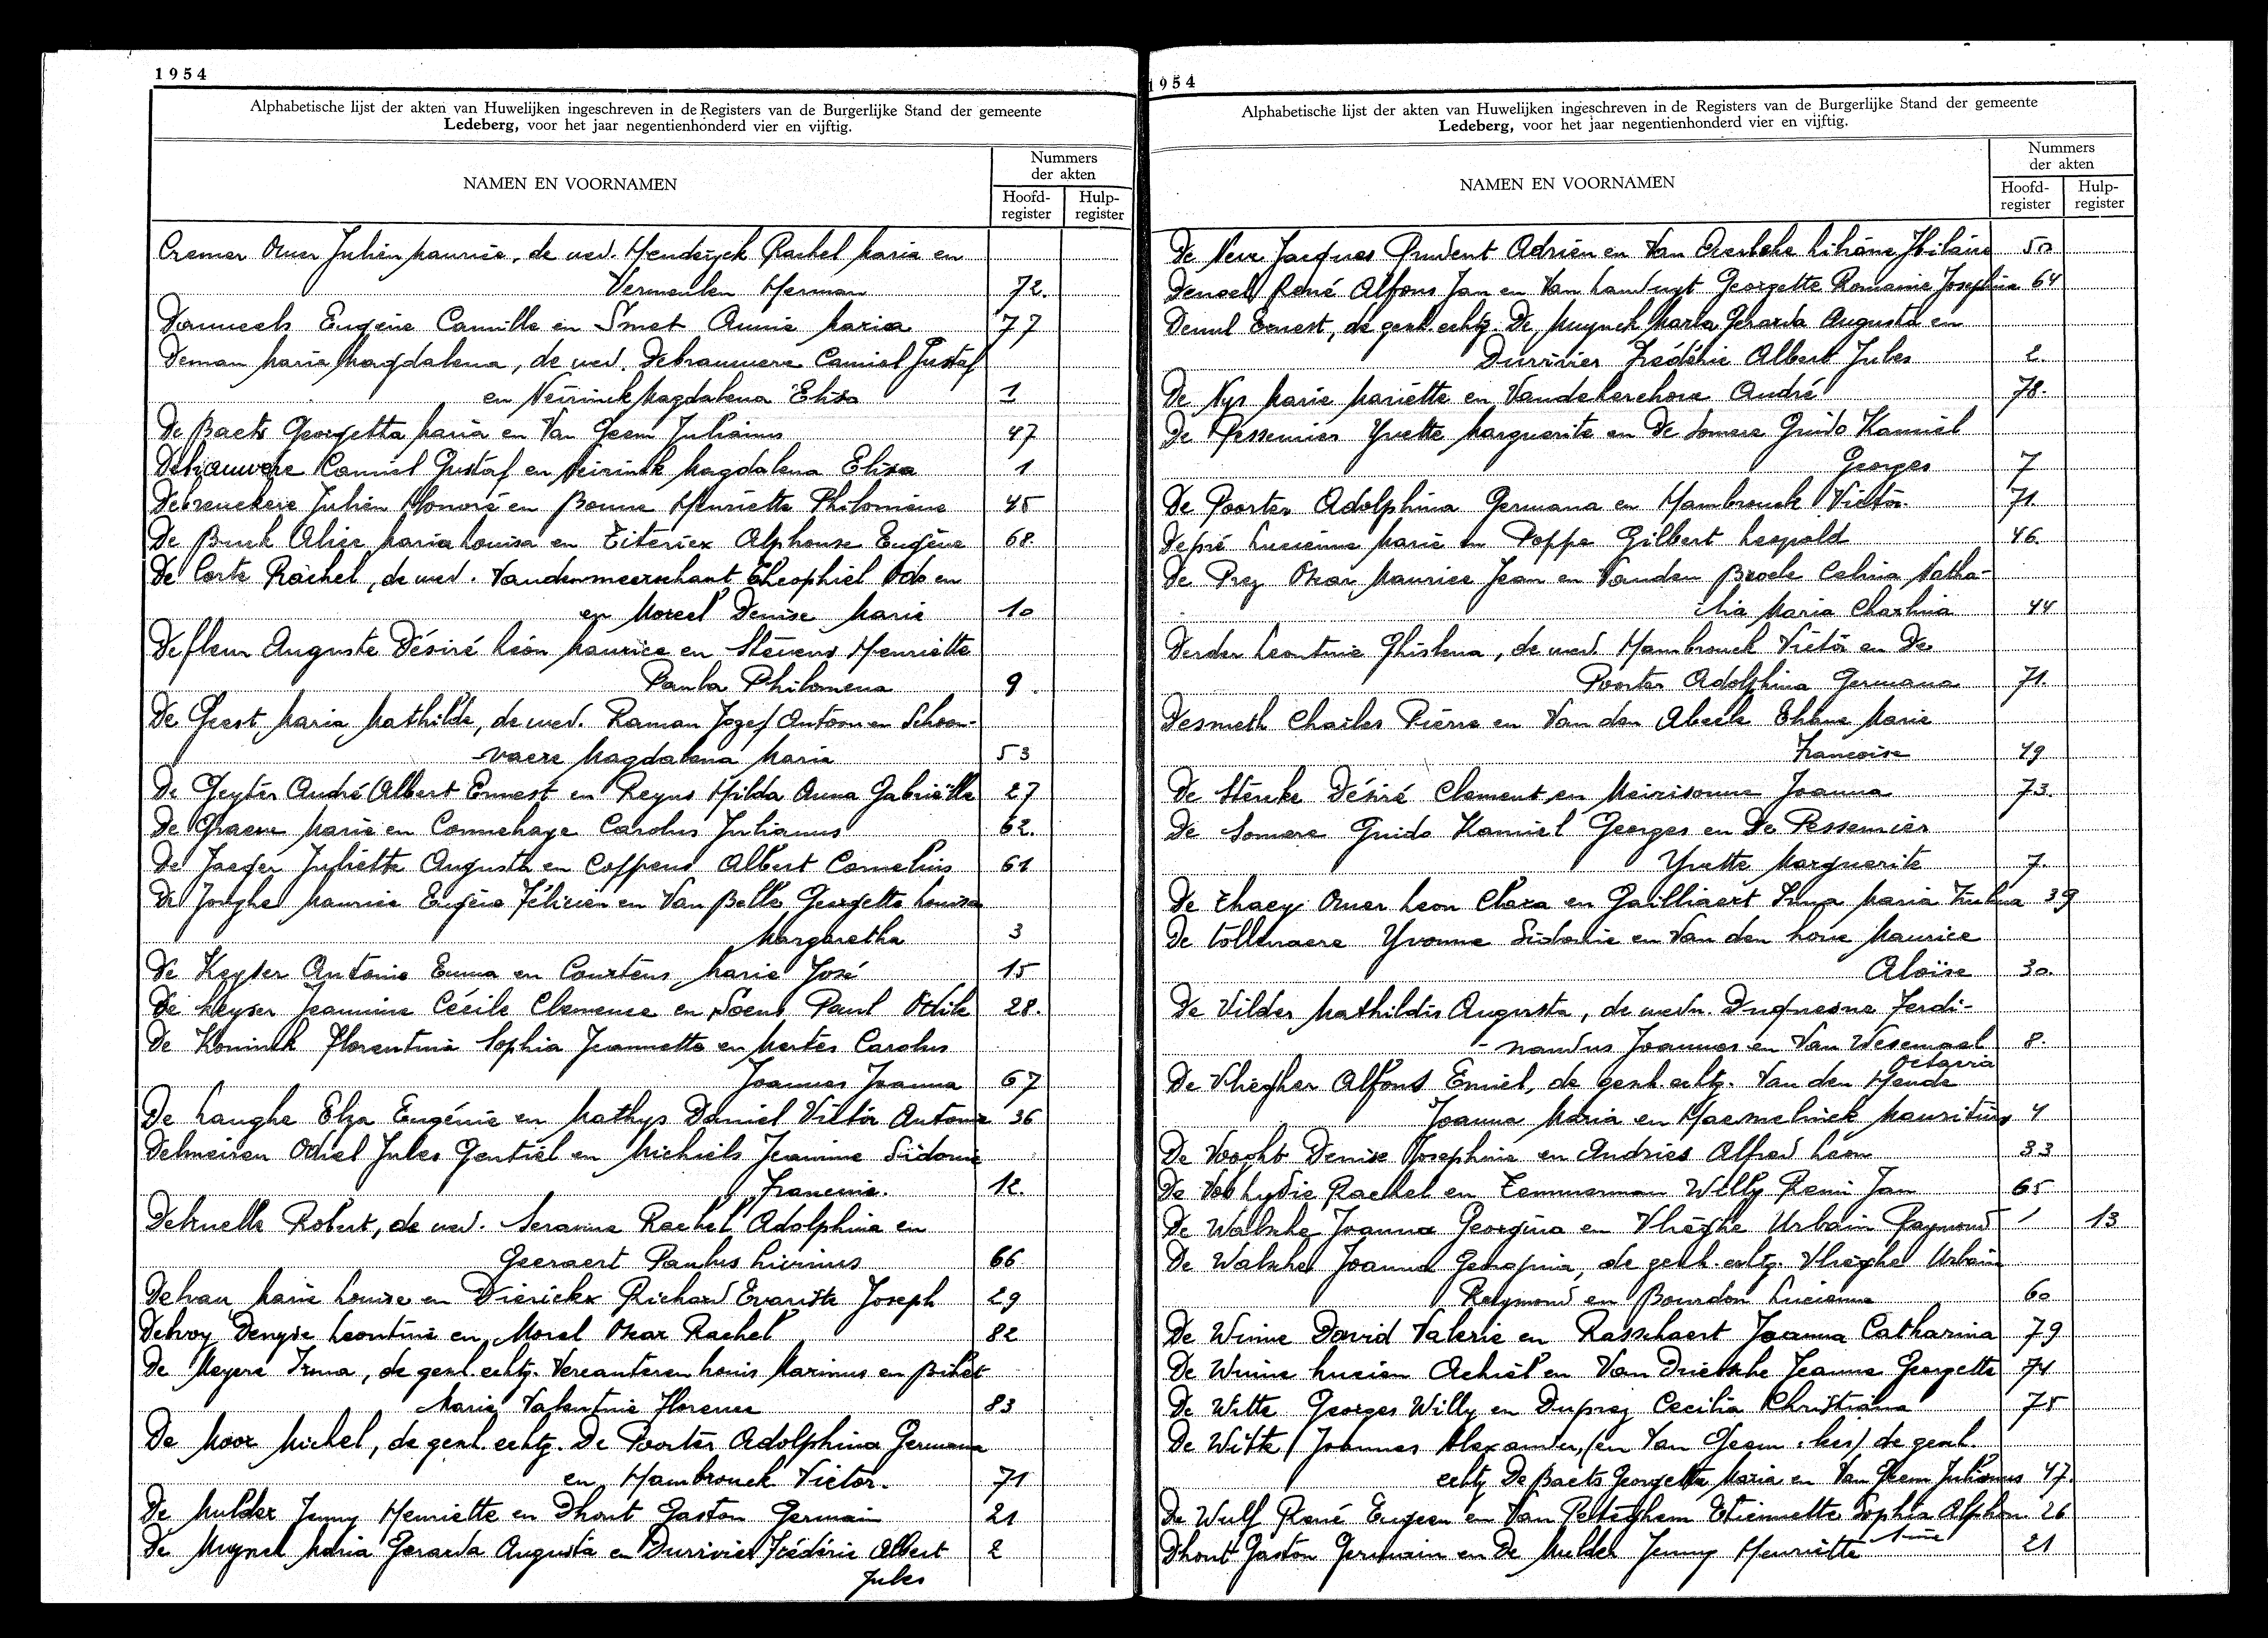 1954
Alphabetische lijst der akten van Huwelijken ingeschreven in de Registers van de Burgerlijke Stand der gemeente
Ledeberg, voor het jaar negentienhonderd vier en vijftig.
NAMEN EN VOORNAMEN
Nummers
der akten
Hoofd-
register
Hulp-
register
Cremer Omer Julien Maurice, de wed. Henderyck Rachel Maria en
Vermeulen Herman 72.
Danneels Eugène Camille en Smet Annie Maria 77
Deman Maria Magdalena, de wed. Debrauwere Camiel Gustaf
en Neirinck Magdalena Elisa 1
De Baets Georgetta Maria en Van Geem Julianus 47
Debrauwere Camiel Gustaf en Neirinck Magdalena Elisa 1
Debreuckere Julien Honoré en Bonne Henriette Philomène 45
De Buck Alice Maria Louisa en Eiteriex Alphonse Eugène 68.
De Corte Rachel, de wed. Vandermeerschaut Theophiel Odo en
en Moreel Denise Marie 10
Defleur Auguste Désiré Léon Maurice en Stevens Henriette
Paula Philomena 9.
De Geest Maria Mathilde, de wed. Raman Jozef Antoon en Schoon-
vaere Magdalena Maria 53
De Geyter André Albert Ernest en Reyns Hilda Anna Gabrielle 27
De Graeve Marie en Connehaye Carolus Julianus 62.
De Jaeger Juliette Augusta en Coppens Albert Cornelius 61
De Jonghe Maurice Eugène Félicien en Van Belle Georgette Louisa
Margaretha 3
De Keyser Antonie Emma en Courtens Marie José 15
De Keyser Jeannine Cécile Clemence en Soens Paul Odile 28.
De Koninck Florentina Sophia Jeannette en Mertes Carolus
Joannes Joanna 67
De Langhe Elza Eugénie en Mathys Daniel Victor Antoine 36
Delmeiren Odiel Jules Gentiel en Michiels Jeannine Sidonie
Francine. 12.
Delruelle Robert, de wed. Seranne Rachel Adolphina en
Geeraert Paulus Licinius 66
Delvau Marie Louise en Dierickx Richard Evariste Joseph 29
Delvoy Denyse Leontine en Morel Oscar Rachel 82
De Meyere Irma, de gesch. echtg. Vercauteren Louis Marinus en Bihet
Marie Valentine Florence 83
De Moor Michel, de gesch. echtg. De Poorter Adolphina Germana
en Hambrouck Victor. 71
De Mulder Jenny Henriette en Dhont Gaston Germain 21
De Muynck Maria Gerarda Augusta en Durivier Frédéric Albert 2
Jules
1954
Alphabetische lijst der akten van Huwelijken ingeschreven in de Registers van de Burgerlijke Stand der gemeente
Ledeberg, voor het jaar negentienhonderd vier en vijftig.
NAMEN EN VOORNAMEN
Nummers
der akten
Hoofd-
register
Hulp-
register
De Neve Jacques Prudent Adrien en Van Overbeke Liliane Hilaire 50
Denoel René Alfons Jan en Van Landuyt Georgette Romanie Josephina 64
Denul Ernest, de gesch. echtg. De Muynck Maria Gerarda Augusta en
Durivier Frédéric Albert Jules 2
De Nys Marie Mariëtte en Vandekerchove André 78.
De Pessemier Yvette Marguerite en De Somere Guido Kamiel
Georges 7
De Poorter Adolphina Germana en Hambrouck Victor 71
Depré Lucienne Marie en Poppe Gilbert Leopold 46.
De Prez Oscar Maurice Jean en Vanden Broecke Celina Natha-
lia Maria Charlina 44
Derder Leontine Ghislena, de wed. Hambrouck Victor en De
Poorter Adolphina Germana 71.
Desmeth Charles Pierre en Van den Abeele Eliane Marie
Francoise 49
De Sterke Désiré Clement en Meirisonne Joanna 73.
De Somere Guido Kamiel Georges en De Pessemier
Yvette Marguerite 7
De Thaey Omer Leon Clara en Gailliaert Irma Maria 39
De Tollenaere Yvonne Sidonie en Van den hove Maurice
Aloïse 30.
De Vilder Mathildis Augusta, de wedn. Duquesne Ferdi-
nandus Joannes en Van Wesemael 8.
Octavia
De Vliegher Alfons Emiel, de gesch. echtg. Van den Hende
Joanna Maria en Haemelinck Mauritius 4
De Vooght Denise Josephine en Andries Alfred Léon 33
De Vos Lydie Rachel en Temmerman Willy Remi Jan 65
De Walsche Joanna Georgina en Vlieghe Urbain Raymond / 13
De Walsche Joanna Georgina, de gesch. echtg. Vlieghe Urbain
Raymond en Bourdon Lucienne 60
De Winne David Valerie en Rasschaert Joanna Catharina 79
De Winne Lucien Achiel en Van Driessche Jeanne Georgette 74
De Witte Georges Willy en Duprez Cecilia Christiana 75
De Witte (Joannes Alexander, (en Van Geem : hes) de gesch.
echtg. De Baets Georgetta Maria en Van Geem Julianus 47.
De Wulf René Eugeen en Van Peteghem Etiennette Sophia Alphon 26
sine
Dhont Gaston Germain en De Mulder Jenny Henriette 21